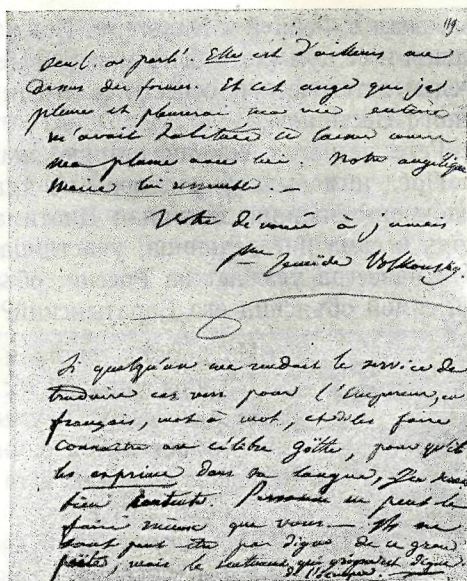 119.
seul a parlé. Elle est d'ailleurs au
dessus des formes. Et cet ange que je
pleure et pleurerai ma vie entière
m'avait habituée à laisser courir
ma plume avec lui. Notre angélique
Marie lui ressemble —
Votre dévouée à jamais
Pse Zeneïde Volkonsky.
Si quelqu'un me rendait le service de
traduire ces vers pour l'Empereur, en
français, mot à mot, et de les faire
connaître au célèbre Götte, pour qu'il
les exprime dans sa langue, j'en serais
bien contente. Personne ne peut le
faire mieux que vous — Ils ne
sont peut-être pas digne de ce grand
poète, mais le sentiment qui
digne